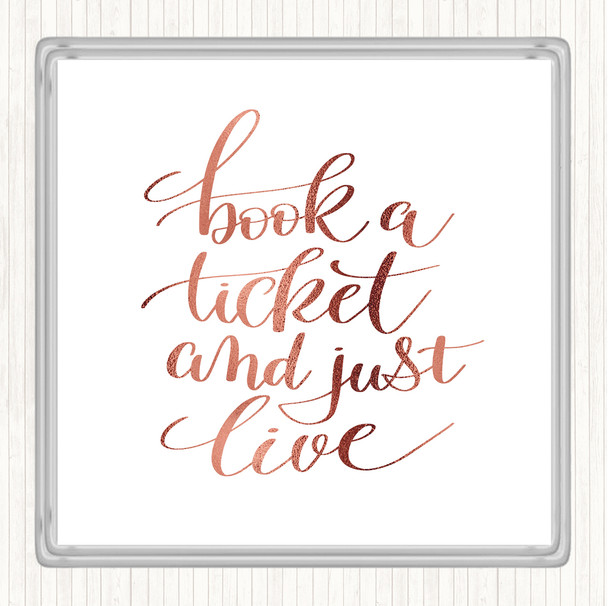 book a
ticket
and just
live